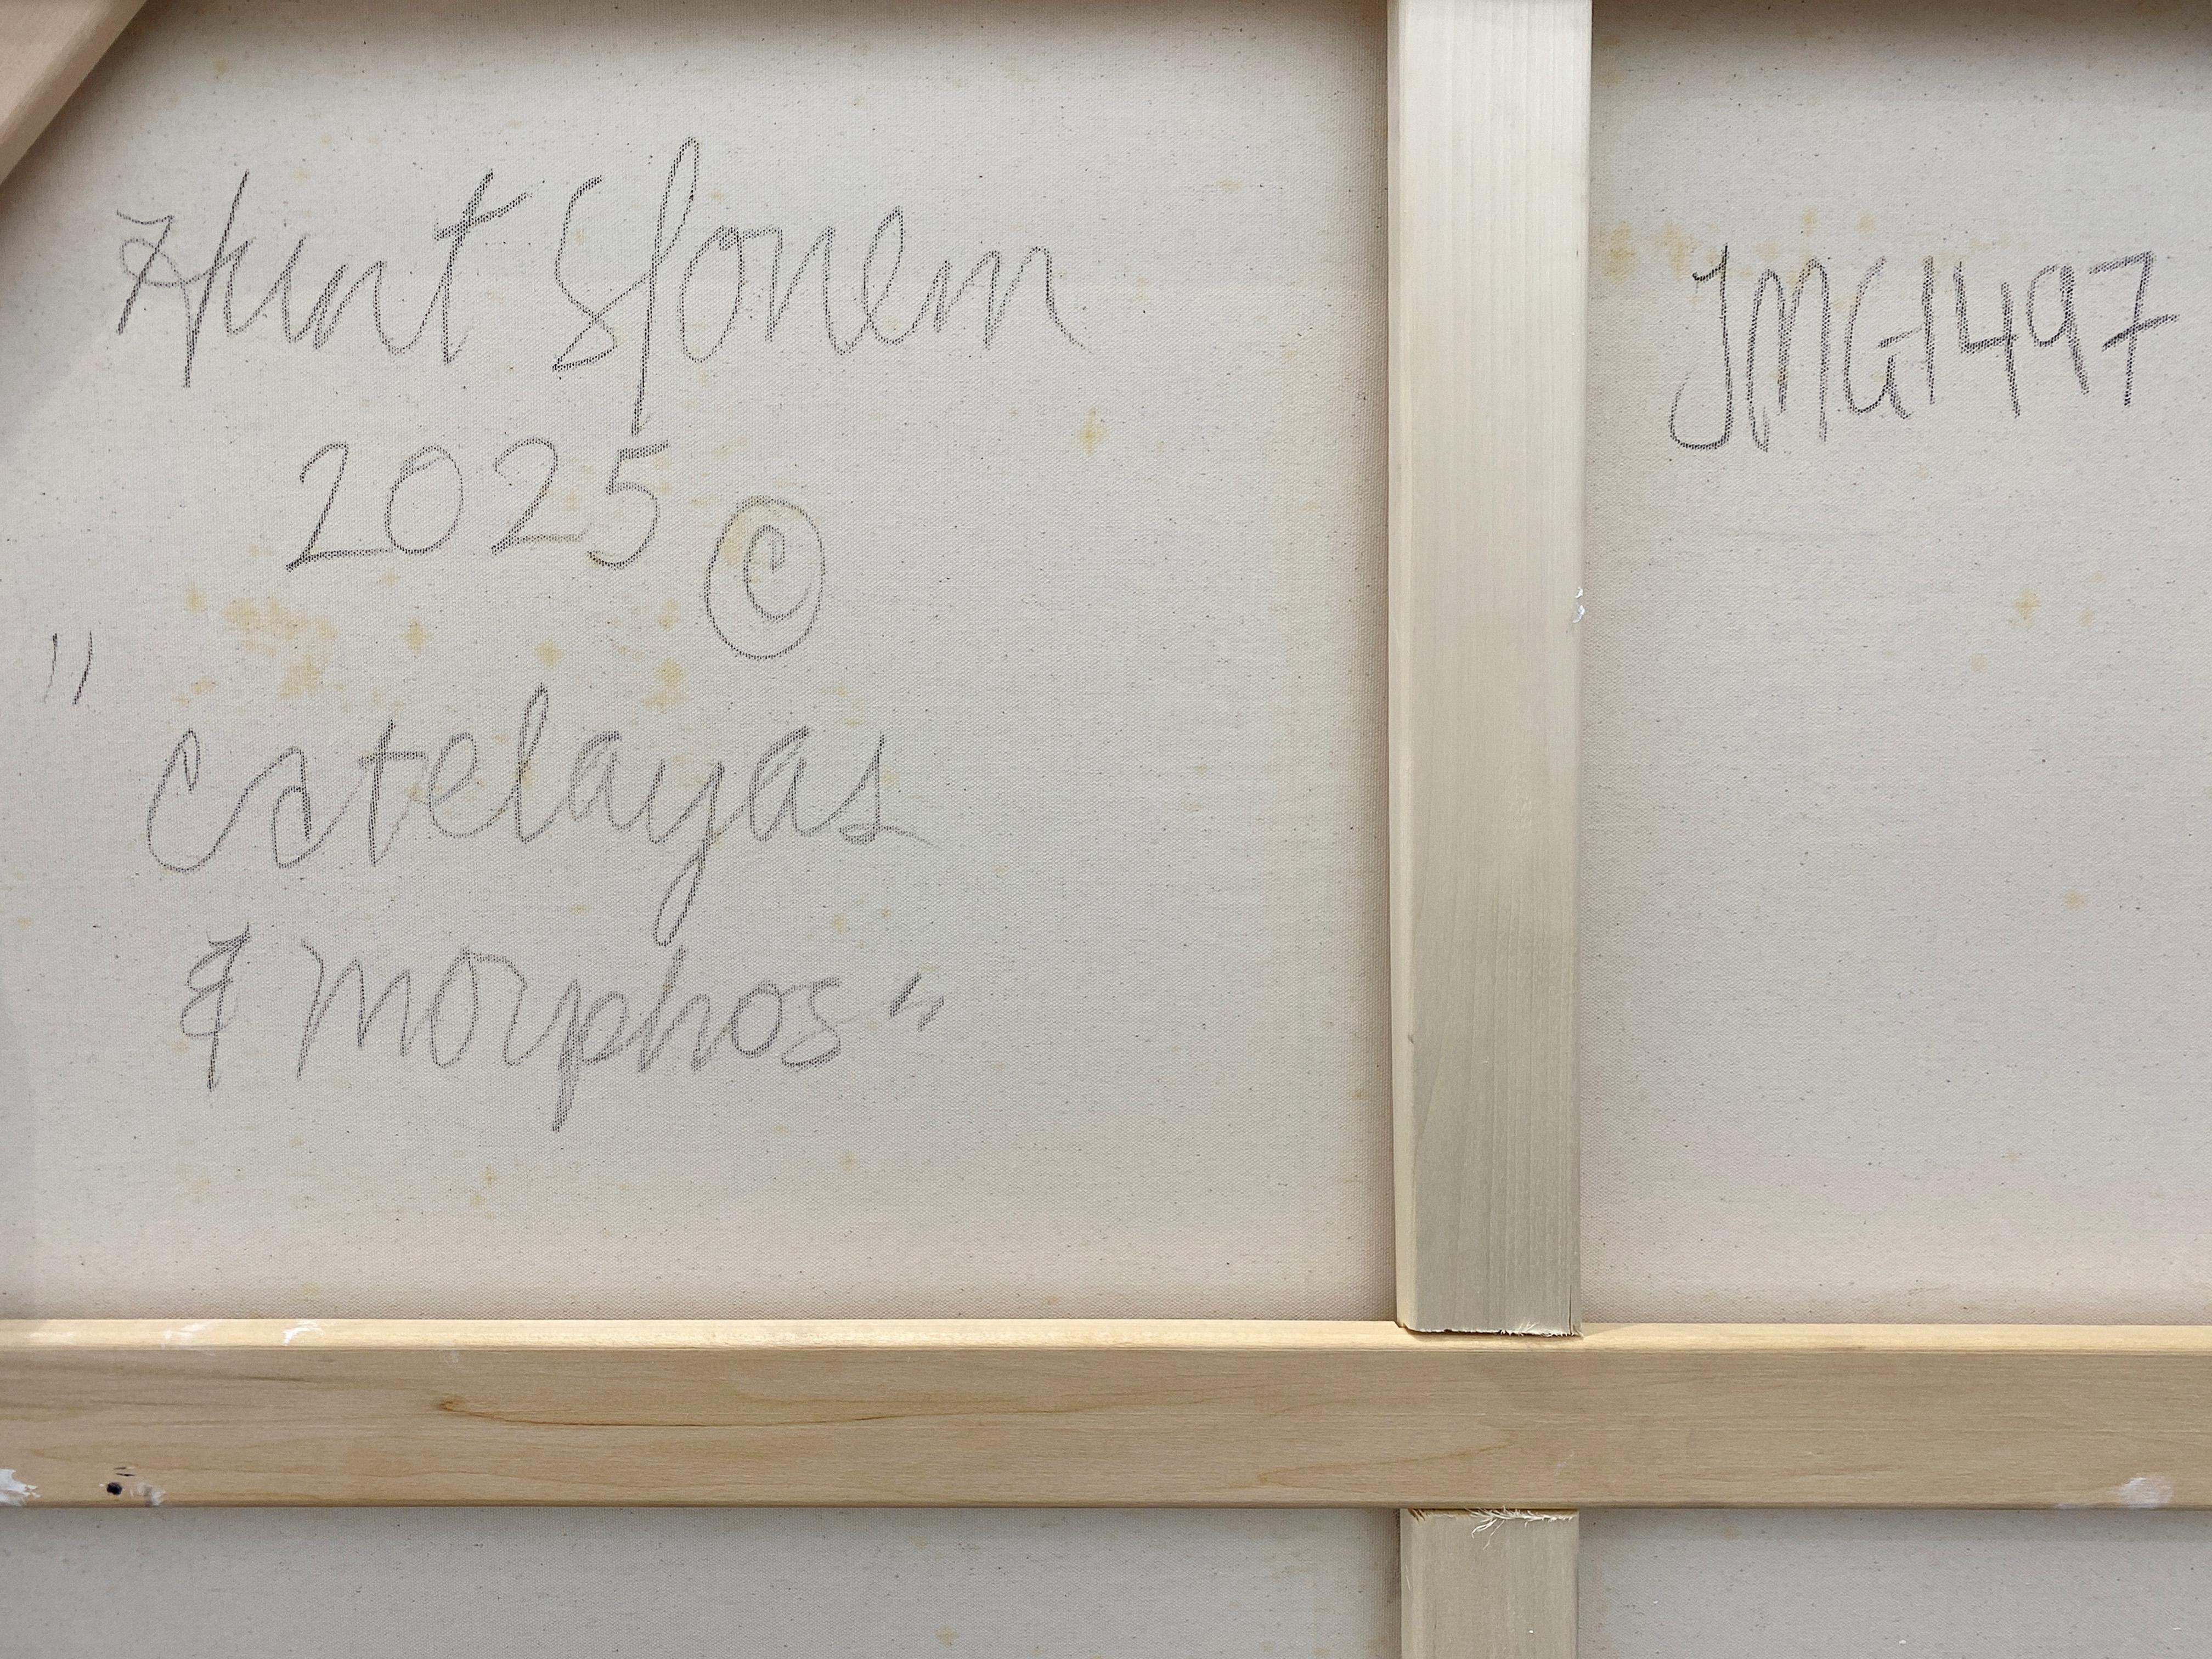 Hunt Slonem
2025 ©
"Catelayas
& Morphos"
JMG1497